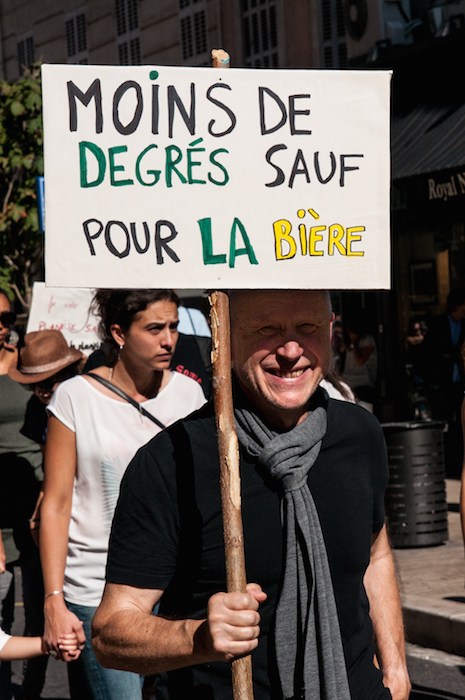 MOiNS DE
DEGRÉS SAUF
POUR LA BiÈRE
Royal